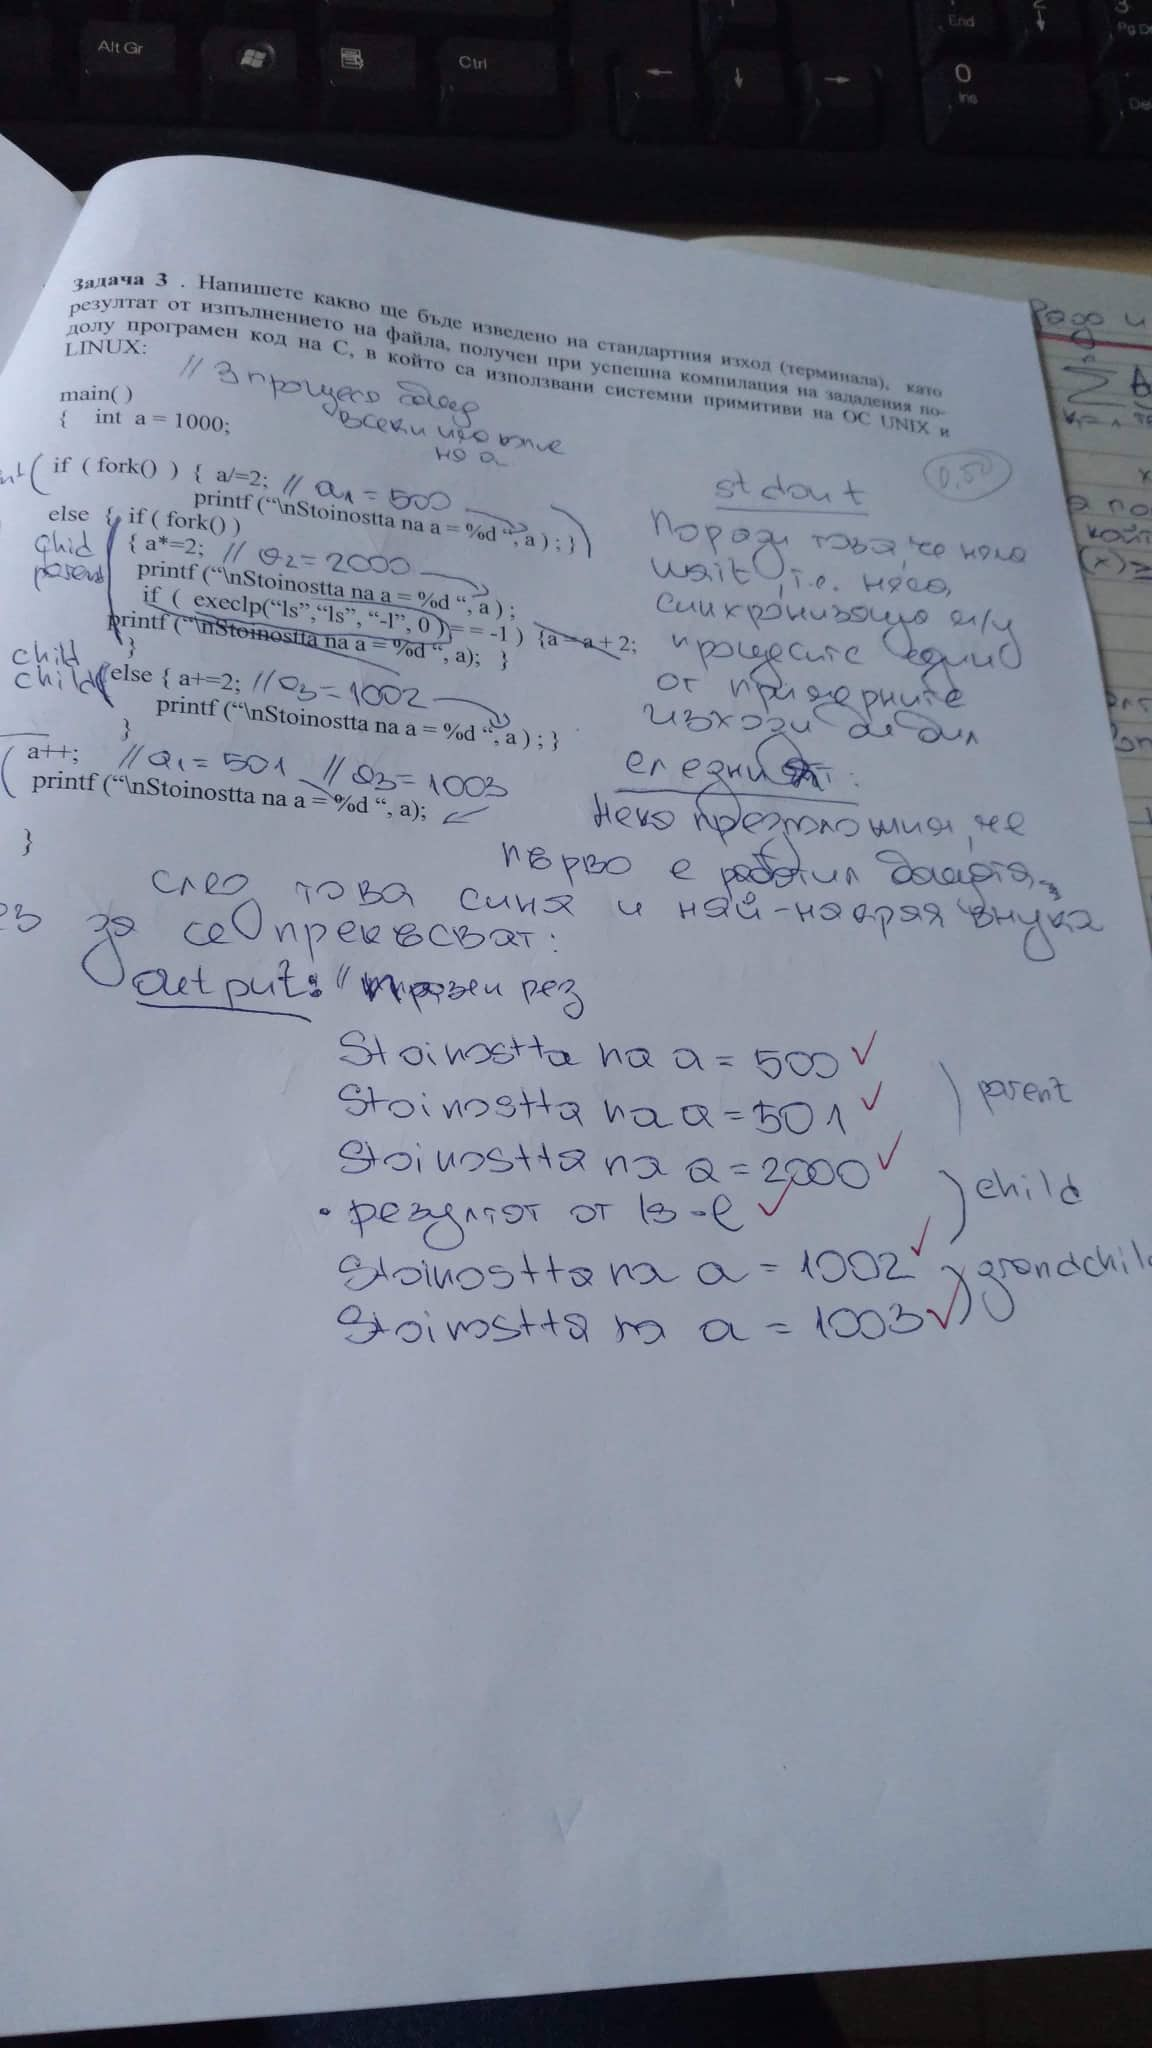 Alt Gr
Ctrl
End
Pg D
0
Ins
De
Задача 3 . Напишете какво ще бъде изведено на стандартния изход (терминала), като
резултат от изпълнението на файла, получен при успешна компилация на зададения по-
долу програмен код на C, в който са използвани системни примитиви на ОС UNIX и
LINUX:
// 3 процеса
всеки
на a
main( )
{ int a = 1000;
0,50
if ( fork() ) { a/=2; // a1 = 500
printf (“\nStoinostta na a = %d “, a ) ; }
else { if ( fork() )
chid
parent
{ a*=2; // a2 = 2000
printf (“\nStoinostta na a = %d “, a ) ;
if ( execlp(“ls”,“ls”, “-l”, 0 ) = = -1 ) {a = a + 2;
printf (“\nStoinostta na a = %d “, a); }
}
child
child
else { a+=2; // a3 = 1002
printf (“\nStoinostta na a = %d “, a ) ; }
}
a++; // a1 = 501 // a3 = 1003
printf (“\nStoinostta na a = %d “, a);
}
stdout
Поради това че няма
wait, i.e. няма
синхронизация м/у
процесите един
от примерните
изходи би бил
следният:
Нека предположим, че
първо е работил бащата,
след това сина и най-накрая внука
без да се прекъсват:
output: // празен рез
Stoinostta na a = 500
Stoinostta na a = 501
parent
Stoinostta na a = 2000
• резултат от ls -l
child
Stoinostta na a = 1002
Stoinostta na a = 1003
grandchild